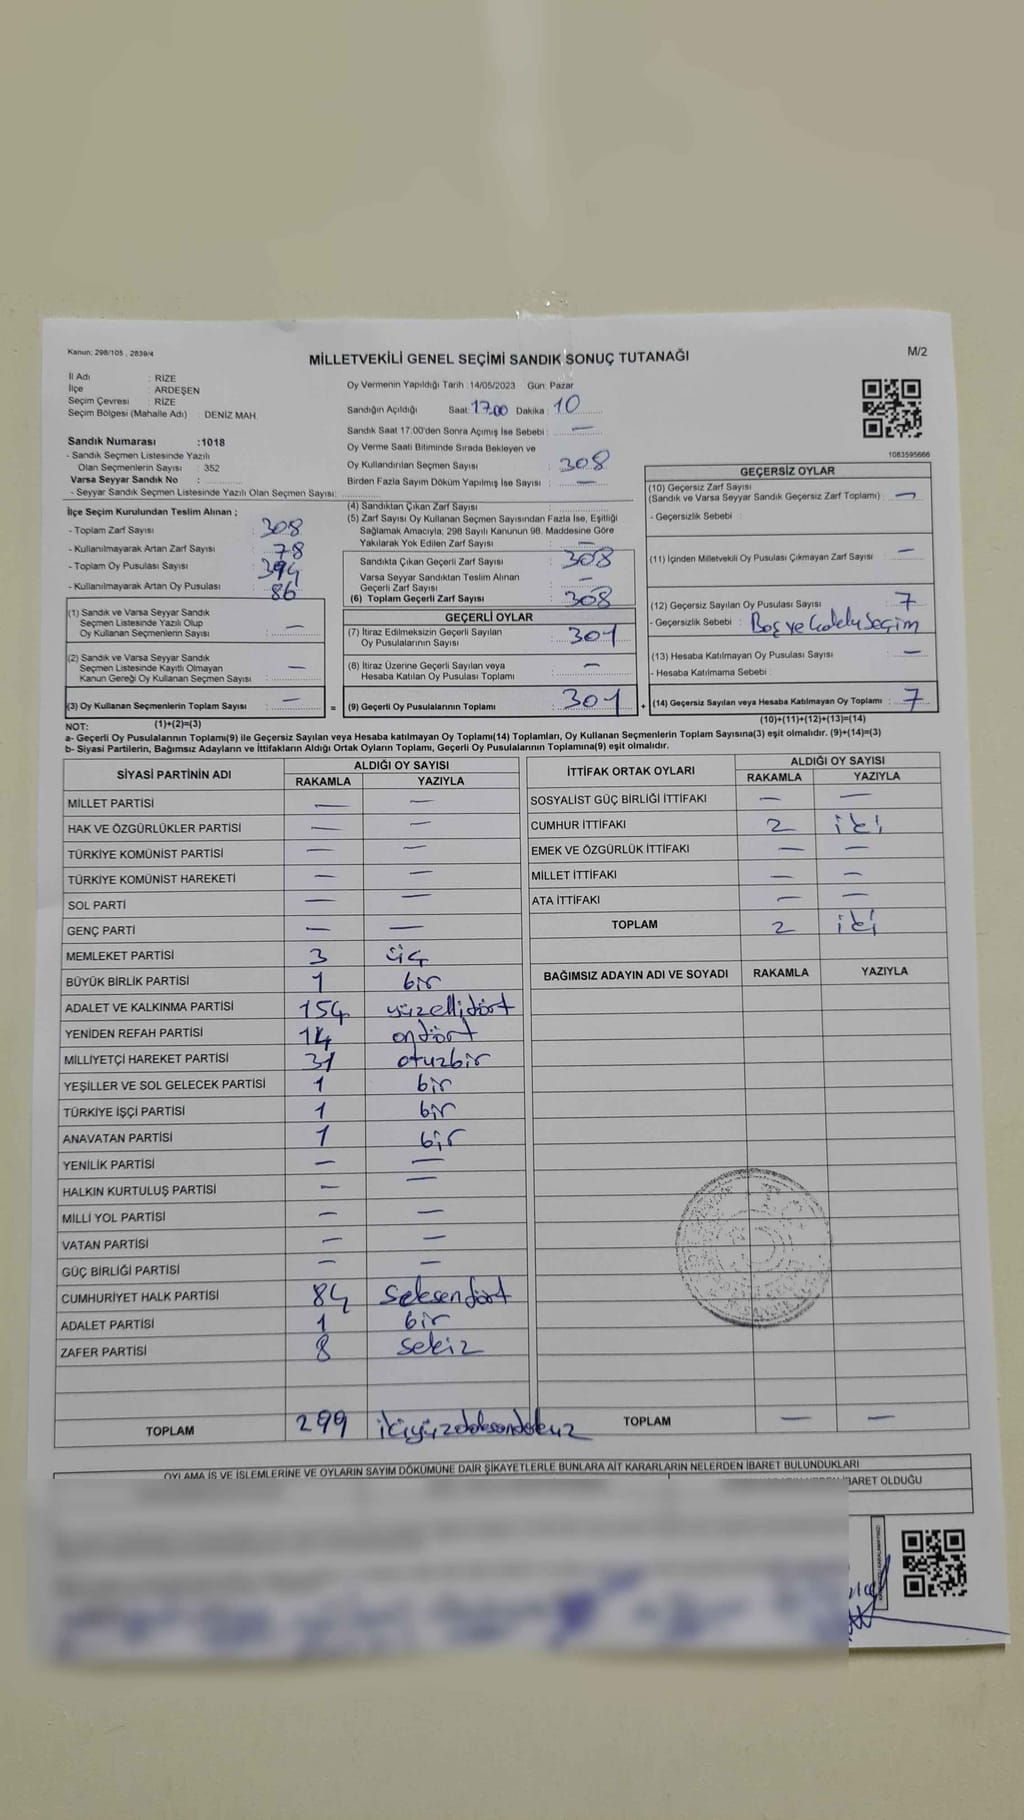 Kanun: 298/105 , 2839/4
MİLLETVEKİLİ GENEL SEÇİMİ SANDIK SONUÇ TUTANAĞI
M/2
İl Adı : RİZE
İlçe : ARDEŞEN
Seçim Çevresi : RİZE
Seçim Bölgesi (Mahalle Adı) : DENİZ MAH.
Sandık Numarası :1018
- Sandık Seçmen Listesinde Yazılı
Olan Seçmenlerin Sayısı : 352
Varsa Seyyar Sandık No :
- Seyyar Sandık Seçmen Listesinde Yazılı Olan Seçmen Sayısı:
Oy Vermenin Yapıldığı Tarih :14/05/2023 Gün: Pazar
Sandığın Açıldığı Saat: 17.00 Dakika : 10
Sandık Saat 17.00'den Sonra Açımış İse Sebebi : —
Oy Verme Saati Bitiminde Sırada Bekleyen ve
Oy Kullandırılan Seçmen Sayısı : 308
Birden Fazla Sayım Döküm Yapılmış İse Sayısı : —
1083595666
İlçe Seçim Kurulundan Teslim Alınan ;
- Toplam Zarf Sayısı : 308
- Kullanılmayarak Artan Zarf Sayısı : 78
- Toplam Oy Pusulası Sayısı : 394
- Kullanılmayarak Artan Oy Pusulası : 86
(1) Sandık ve Varsa Seyyar Sandık
Seçmen Listesinde Yazılı Olup
Oy Kullanan Seçmenlerin Sayısı : —
(2) Sandık ve Varsa Seyyar Sandık
Seçmen Listesinde Kayıtlı Olmayan
Kanun Gereği Oy Kullanan Seçmen Sayısı : —
(3) Oy Kullanan Seçmenlerin Toplam Sayısı : —
(4) Sandıktan Çıkan Zarf Sayısı :
(5) Zarf Sayısı Oy Kullanan Seçmen Sayısından Fazla İse, Eşitliği
Sağlamak Amacıyla; 298 Sayılı Kanunun 98. Maddesine Göre
Yakılarak Yok Edilen Zarf Sayısı : —
Sandıkta Çıkan Geçerli Zarf Sayısı : 308
Varsa Seyyar Sandıktan Teslim Alınan
Geçerli Zarf Sayısı : —
(6) Toplam Geçerli Zarf Sayısı : 308
GEÇERLİ OYLAR
(7) İtiraz Edilmeksizin Geçerli Sayılan
Oy Pusulalarının Sayısı : 301
(8) İtiraz Üzerine Geçerli Sayılan veya
Hesaba Katılan Oy Pusulası Toplamı : —
= (9) Geçerli Oy Pusulalarının Toplamı : 301
GEÇERSİZ OYLAR
(10) Geçersiz Zarf Sayısı
(Sandık ve Varsa Seyyar Sandık Geçersiz Zarf Toplamı) : —
- Geçersizlik Sebebi :
(11) İçinden Milletvekili Oy Pusulası Çıkmayan Zarf Sayısı : —
(12) Geçersiz Sayılan Oy Pusulası Sayısı : 7
- Geçersizlik Sebebi : Boş ve Seçim
(13) Hesaba Katılmayan Oy Pusulası Sayısı : —
- Hesaba Katılmama Sebebi :
+ (14) Geçersiz Sayılan veya Hesaba Katılmayan Oy Toplamı : 7
NOT: (1)+(2)=(3)
(10)+(11)+(12)+(13)=(14)
a- Geçerli Oy Pusulalarının Toplamı(9) ile Geçersiz Sayılan veya Hesaba katılmayan Oy Toplamı(14) Toplamları, Oy Kullanan Seçmenlerin Toplam Sayısına(3) eşit olmalıdır. (9)+(14)=(3)
b- Siyasi Partilerin, Bağımsız Adayların ve İttifakların Aldığı Ortak Oyların Toplamı, Geçerli Oy Pusulalarının Toplamına(9) eşit olmalıdır.
SİYASİ PARTİNİN ADI
ALDIĞI OY SAYISI
RAKAMLA YAZIYLA
MİLLET PARTİSİ — —
HAK VE ÖZGÜRLÜKLER PARTİSİ — —
TÜRKİYE KOMÜNİST PARTİSİ — —
TÜRKİYE KOMÜNİST HAREKETİ — —
SOL PARTİ — —
GENÇ PARTİ — —
MEMLEKET PARTİSİ 3 üç
BÜYÜK BİRLİK PARTİSİ 1 bir
ADALET VE KALKINMA PARTİSİ 154 yüzellidört
YENİDEN REFAH PARTİSİ 14 ondört
MİLLİYETÇİ HAREKET PARTİSİ 31 otuzbir
YEŞİLLER VE SOL GELECEK PARTİSİ 1 bir
TÜRKİYE İŞÇİ PARTİSİ 1 bir
ANAVATAN PARTİSİ 1 bir
YENİLİK PARTİSİ — —
HALKIN KURTULUŞ PARTİSİ — —
MİLLİ YOL PARTİSİ — —
VATAN PARTİSİ — —
GÜÇ BİRLİĞİ PARTİSİ — —
CUMHURİYET HALK PARTİSİ 84 Seksendört
ADALET PARTİSİ 1 bir
ZAFER PARTİSİ 8 sekiz
TOPLAM 299 ikiyüzdoksandokuz
İTTİFAK ORTAK OYLARI
ALDIĞI OY SAYISI
RAKAMLA YAZIYLA
SOSYALİST GÜÇ BİRLİĞİ İTTİFAKI — —
CUMHUR İTTİFAKI 2 iki
EMEK VE ÖZGÜRLÜK İTTİFAKI — —
MİLLET İTTİFAKI — —
ATA İTTİFAKI — —
TOPLAM 2 iki
BAĞIMSIZ ADAYIN ADI VE SOYADI RAKAMLA YAZIYLA
TOPLAM — —
OYLAMA İŞ VE İŞLEMLERİNE VE OYLARIN SAYIM DÖKÜMÜNE DAİR ŞİKAYETLERLE BUNLARA AİT KARARLARIN NELERDEN İBARET BULUNDUKLARI
İBARET OLDUĞU